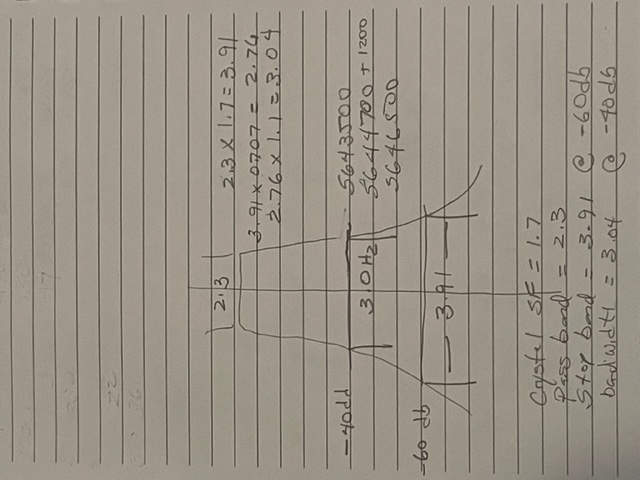 2.3
2.3 x 1.7 = 3.91
3.91 x 0707 = 2.76
2.76 x 1.1 = 3.04
-40dd
5643500
3.0Hz
5644700 + 1200
5646500
-60 db
3.91
Crystel SF = 1.7
Pass band = 2.3
Stop band = 3.91 @ -60db
bandwidth = 3.04 @ -40db